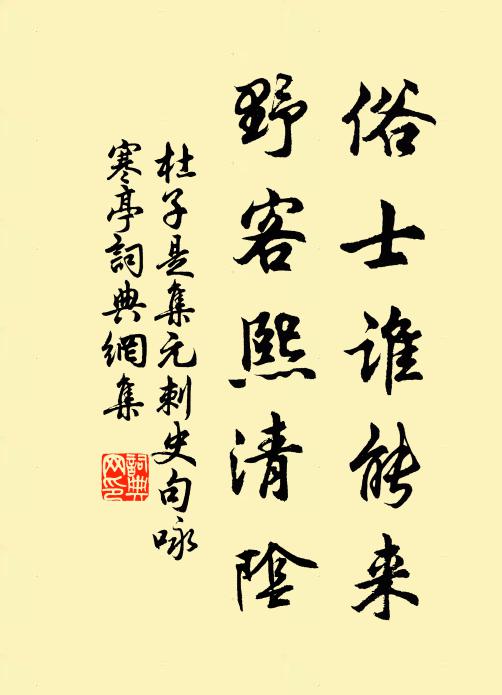 俗士谁能来
野客熙清陰
杜子是集元刺史句咏
寒亭詞典網集
詞典
网印